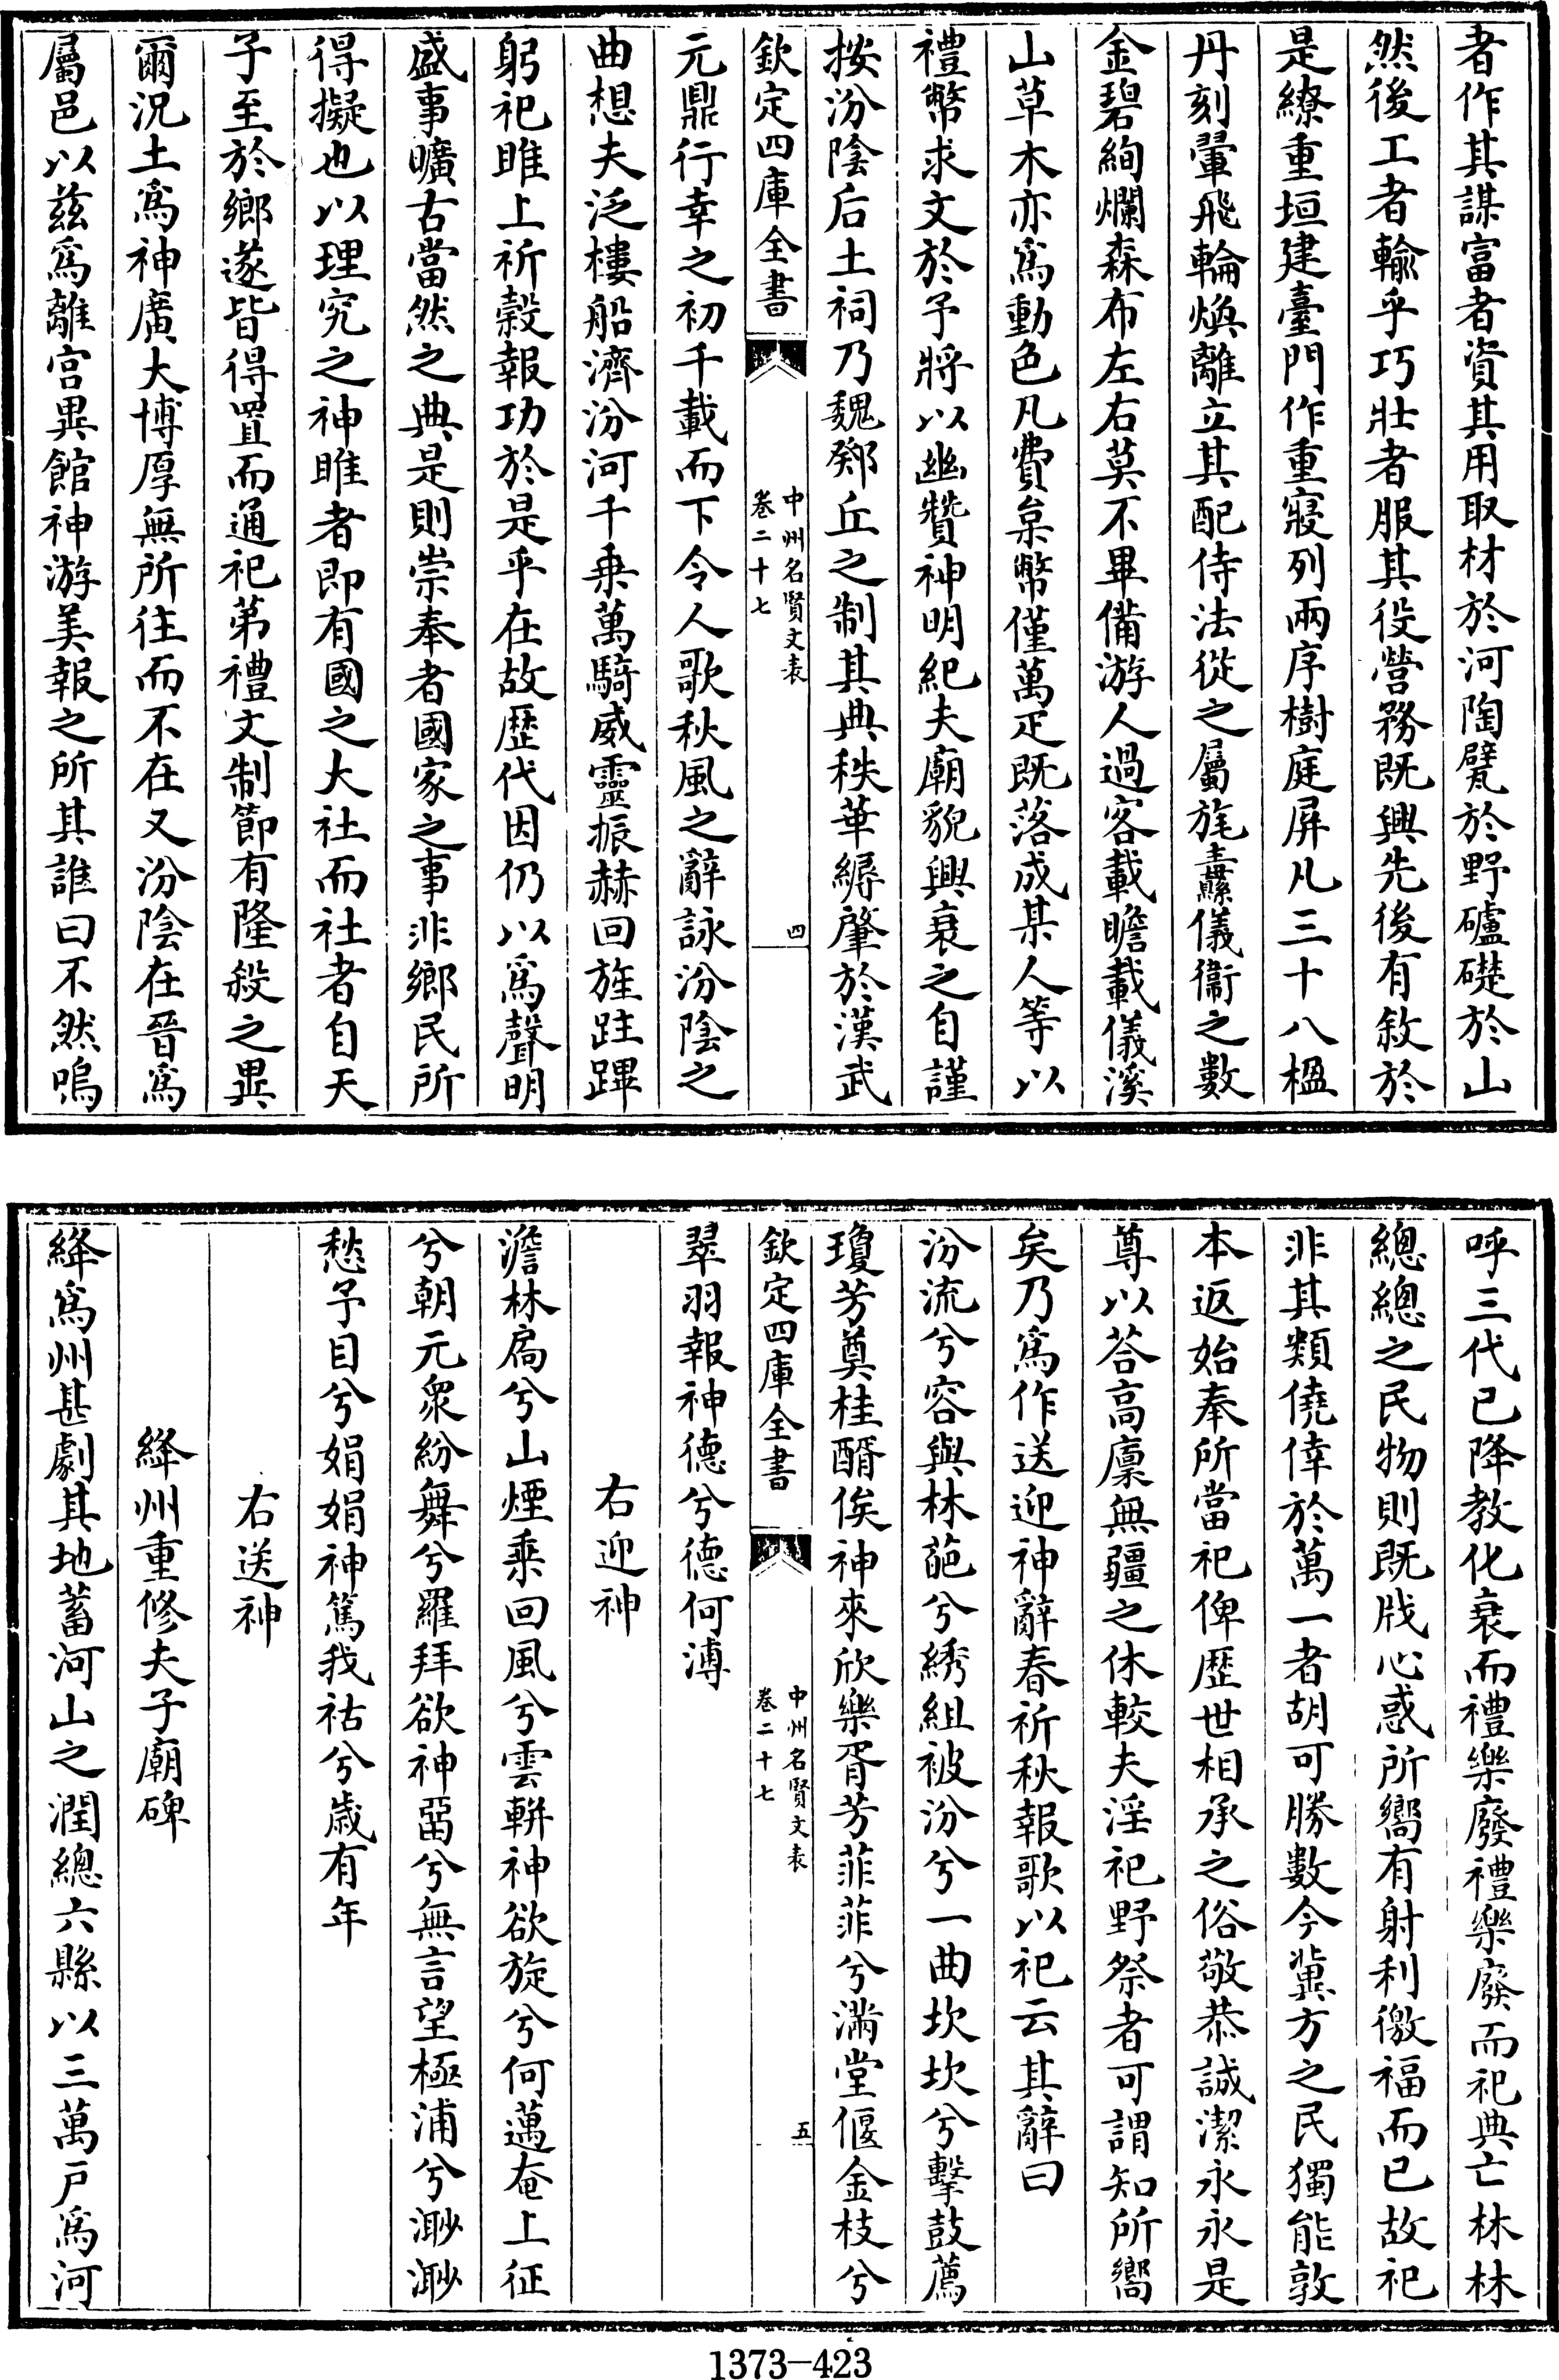 者作其謀富者資其用取材於河陶甓於野礦礎於山
然後工者輸乎巧壯者服其役營務既興先後有敘於
是繚重垣建臺門作重寢列兩序樹庭屏凡三十八楹
丹刻翬飛輪煥離立其配侍法從之屬旄纛儀衛之數
金碧絢爛森布左右莫不畢備游人過客載瞻載儀溪
山草木亦爲動色凡費枲幣僅萬疋既落成某人等以
禮幣求文於予將以幽贊神明紀夫廟貌興衰之自謹
按汾陰后土祠乃魏郊丘之制其典秩華縟肇於漢武
欽定四庫全書
中州名賢文表
卷二十七
四
元鼎行幸之初千載而下令人歌秋風之辭詠汾陰之
曲想夫泛樓船濟汾河千乗萬騎威靈振赫回旌駐蹕
躬祀脽上祈穀報功於是乎在故歷代因仍以爲聲明
盛事曠古當然之典是則崇奉者國家之事非鄉民所
得擬也以理究之神脽者即有國之大社而社者自天
子至於鄉遂皆得置而通祀第禮文制節有隆殺之異
爾况土爲神廣大博厚無所往而不在又汾陰在晉爲
屬邑以兹爲離宫異館神游美報之所其誰曰不然嗚
呼三代已降教化衰而禮樂廢禮樂廢而祀典亡林林
總總之民物則既戕心惑所嚮有射利徼福而已故祀
非其類僥倖於萬一者胡可勝數今冀方之民獨能敦
本返始奉所當祀俾歷世相承之俗敬恭誠潔永永是
尊以荅高廪無疆之休較夫淫祀野祭者可謂知所嚮
矣乃爲作送迎神辭春祈秋報歌以祀云其辭曰
汾流兮容與林葩兮綉組被汾兮一曲坎坎兮擊鼓薦
瓊芳奠桂醑俟神來欣樂胥芳菲菲兮滿堂偃金枝兮
欽定四庫全書
中州名賢文表
卷二十七
五
翠羽報神德兮德何溥
右迎神
澹林扃兮山煙乘回風兮雲軿神欲旋兮何邁奄上征
兮朝元衆紛舞兮羅拜欲神畱兮無言望極浦兮渺渺
愁予目兮娟娟神篤我祜兮歲有年
右送神
絳州重修夫子廟碑
絳爲州甚劇其地蓄河山之潤總六縣以三萬戸爲河
1373-423